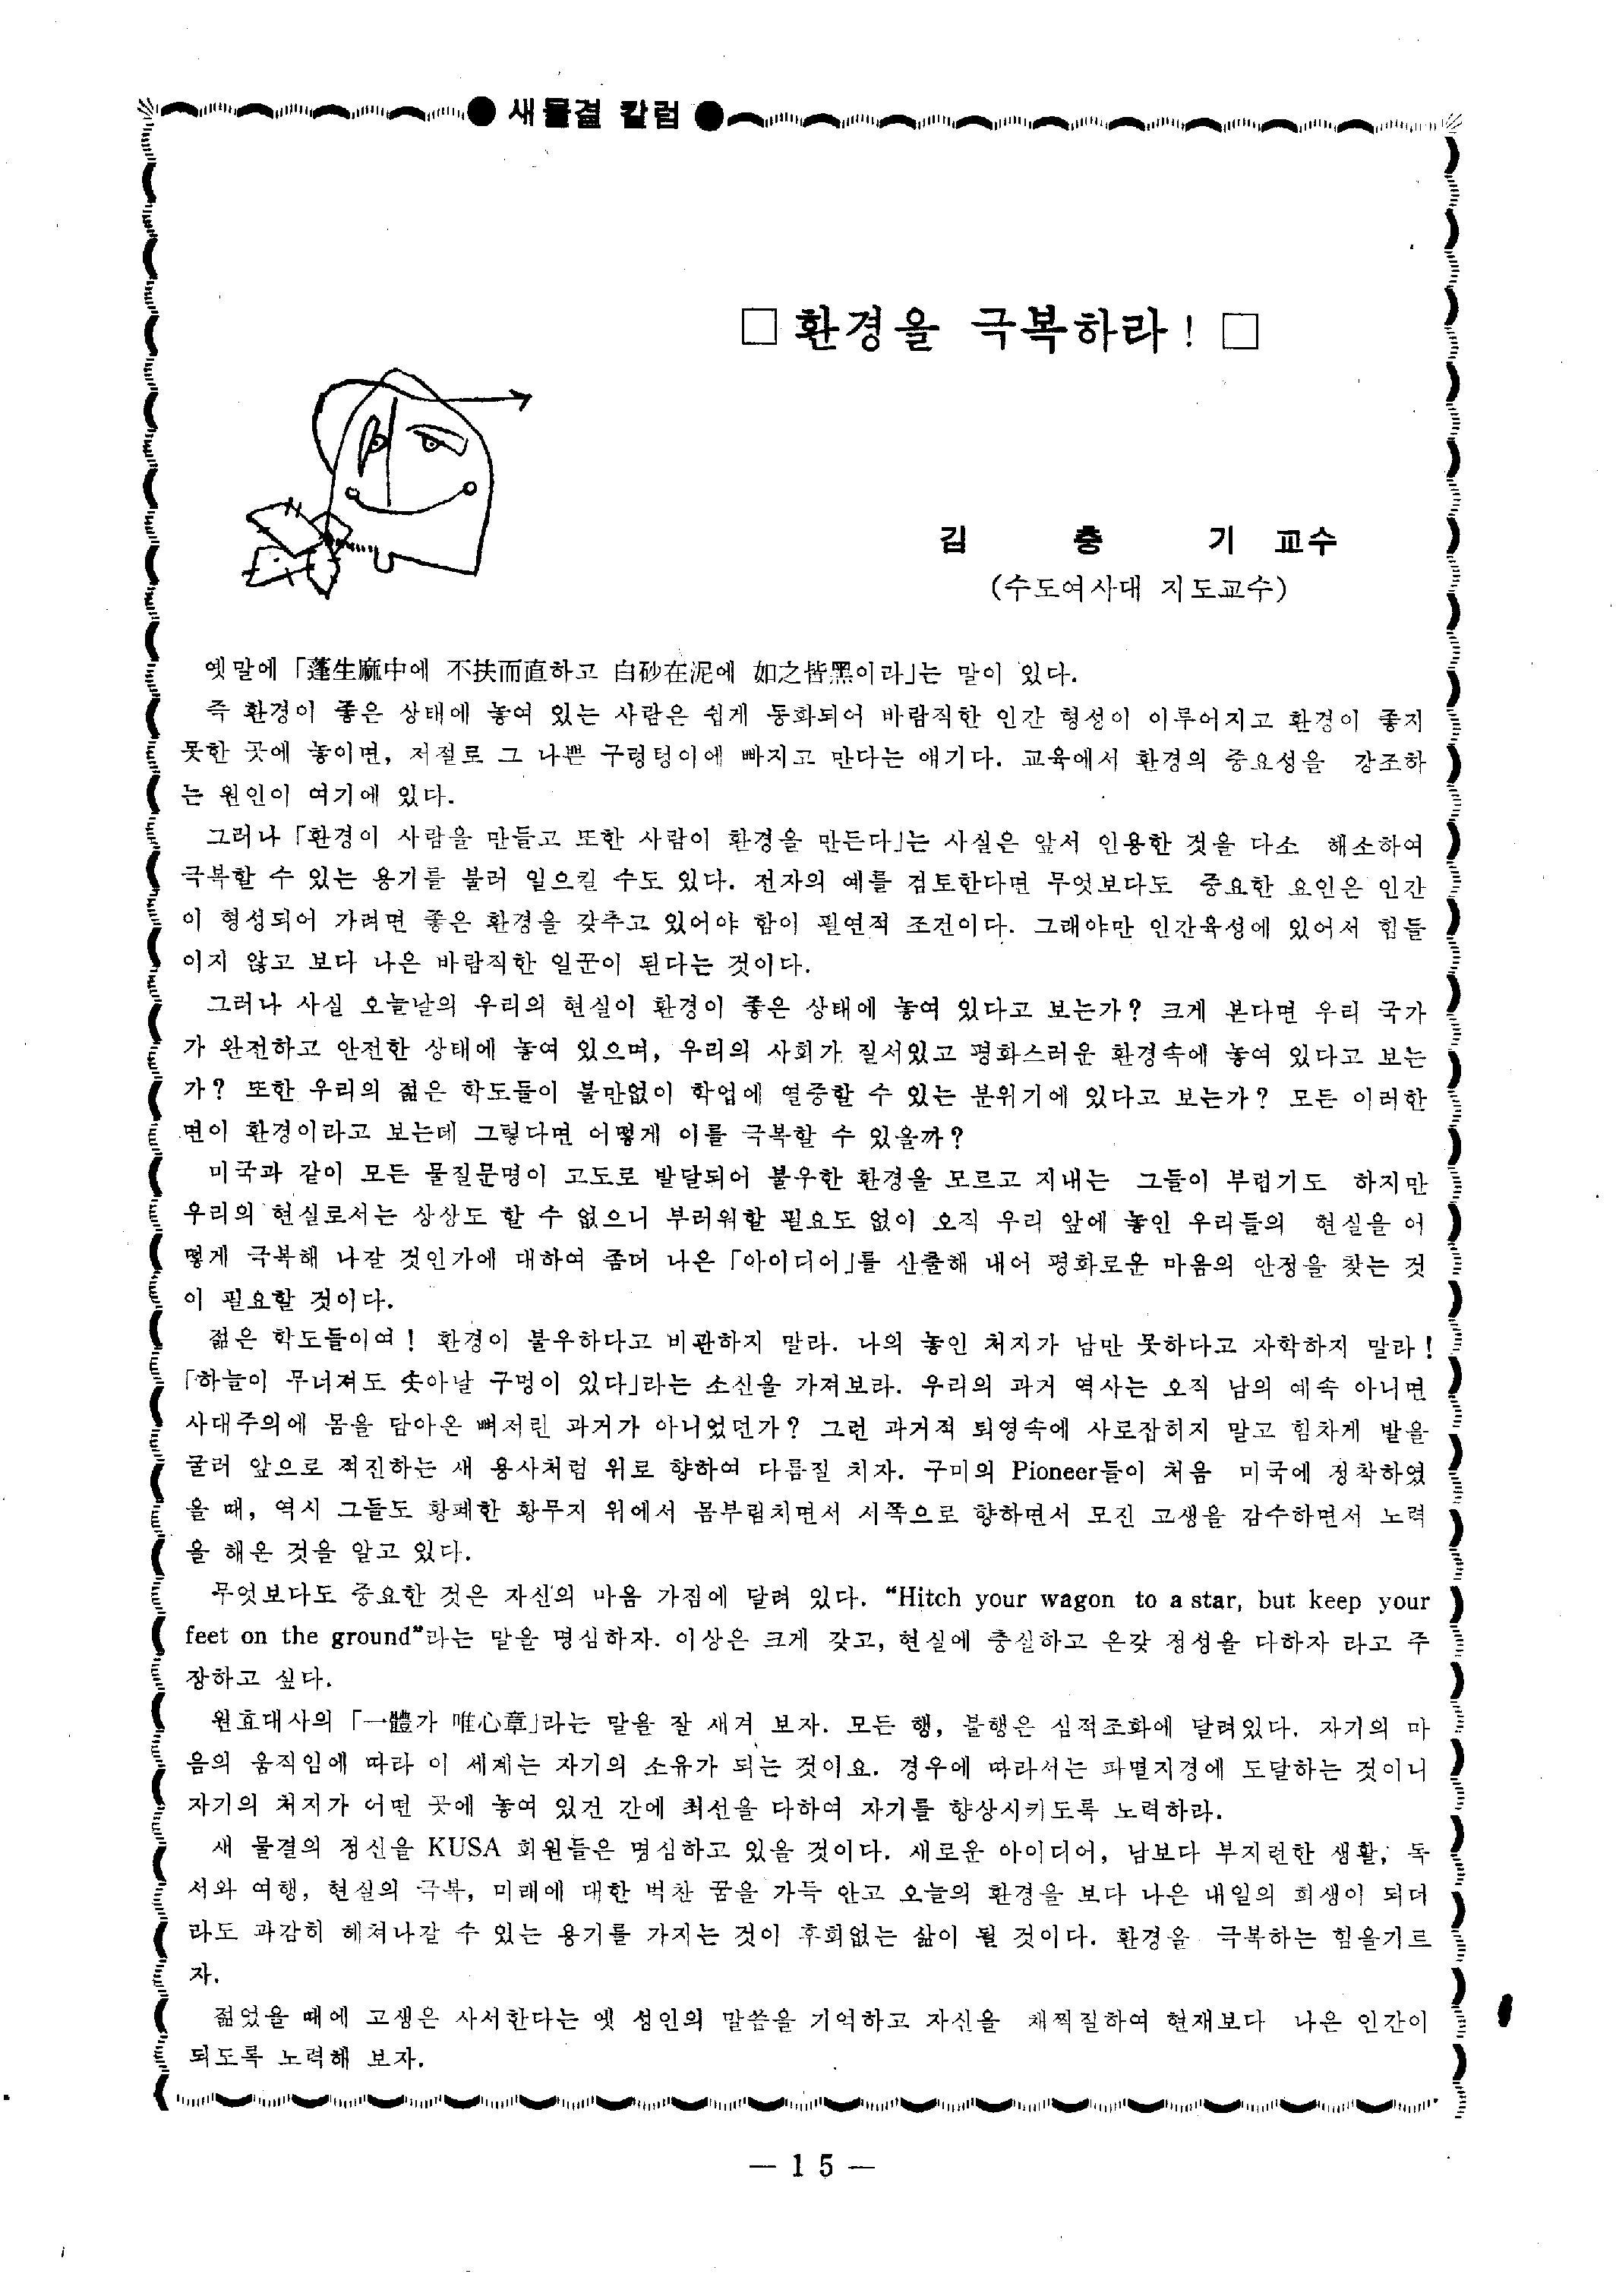 ●새물결 칼럼●
□환경을 극복하라! □
김 충 기 교수
(수도여사대 지도교수)
옛말에 「蓬生麻中에 不扶而直하고 白砂在泥에 如之皆黑이라」는 말이 있다.
즉 환경이 좋은 상태에 놓여 있는 사람은 쉽게 동화되어 바람직한 인간 형성이 이루어지고 환경이 좋지
못한 곳에 놓이면, 저절로 그 나쁜 구렁텅이에 빠지고 만다는 얘기다. 교육에서 환경의 중요성을 강조하
는 원인이 여기에 있다.
그러나 「환경이 사람을 만들고 또한 사람이 환경을 만든다」는 사실은 앞서 인용한 것을 다소 해소하여
극복할 수 있는 용기를 불러 일으킬 수도 있다. 전자의 예를 검토한다면 무엇보다도 중요한 요인은 인간
이 형성되어 가려면 좋은 환경을 갖추고 있어야 함이 필연적 조건이다. 그래야만 인간육성에 있어서 힘들
이지 않고 보다 나은 바람직한 일꾼이 된다는 것이다.
그러나 사실 오늘날의 우리의 현실이 환경이 좋은 상태에 놓여 있다고 보는가? 크게 본다면 우리 국가
가 완전하고 안전한 상태에 놓여 있으며, 우리의 사회가 질서있고 평화스러운 환경속에 놓여 있다고 보는
가? 또한 우리의 젊은 학도들이 불만없이 학업에 열중할 수 있는 분위기에 있다고 보는가? 모든 이러한
면이 환경이라고 보는데 그렇다면 어떻게 이를 극복할 수 있을까?
미국과 같이 모든 물질문명이 고도로 발달되어 불우한 환경을 모르고 지내는 그들이 부럽기도 하지만
우리의 현실로서는 상상도 할 수 없으니 부러워할 필요도 없이 오직 우리 앞에 놓인 우리들의 현실을 어
떻게 극복해 나갈 것인가에 대하여 좀더 나은 「아이디어」를 산출해 내어 평화로운 마음의 안정을 찾는 것
이 필요할 것이다.
젊은 학도들이여! 환경이 불우하다고 비관하지 말라. 나의 놓인 처지가 남만 못하다고 자학하지 말라!
「하늘이 무너져도 솟아날 구멍이 있다」라는 소신을 가져보라. 우리의 과거 역사는 오직 남의 예속 아니면
사대주의에 몸을 담아온 뼈저린 과거가 아니었던가? 그런 과거적 퇴영속에 사로잡히지 말고 힘차게 발을
굴러 앞으로 적진하는 새 용사처럼 위로 향하여 다름질 치자. 구미의 Pioneer들이 처음 미국에 정착하였
을 때, 역시 그들도 황폐한 황무지 위에서 몸부림치면서 서쪽으로 향하면서 모진 고생을 감수하면서 노력
을 해온 것을 알고 있다.
무엇보다도 중요한 것은 자신의 마음 가짐에 달려 있다. “Hitch your wagon to a star, but keep your
feet on the ground”라는 말을 명심하자. 이상은 크게 갖고, 현실에 충실하고 온갖 정성을 다하자 라고 주
장하고 싶다.
원효대사의 「一體가 唯心章」라는 말을 잘 새겨 보자. 모든 행, 불행은 심적조화에 달려있다. 자기의 마
음의 움직임에 따라 이 세계는 자기의 소유가 되는 것이요. 경우에 따라서는 파멸지경에 도달하는 것이니
자기의 처지가 어떤 곳에 놓여 있건 간에 최선을 다하여 자기를 향상시키도록 노력하라.
새 물결의 정신을 KUSA 회원들은 명심하고 있을 것이다. 새로운 아이디어, 남보다 부지런한 생활, 독
서와 여행, 현실의 극복, 미래에 대한 벅찬 꿈을 가득 안고 오늘의 환경을 보다 나은 내일의 희생이 되더
라도 과감히 헤쳐나갈 수 있는 용기를 가지는 것이 후회없는 삶이 될 것이다. 환경을 극복하는 힘을기르
자.
젊었을 때에 고생은 사서한다는 옛 성인의 말씀을 기억하고 자신을 채찍질하여 현재보다 나은 인간이
되도록 노력해 보자.
— 1 5 —